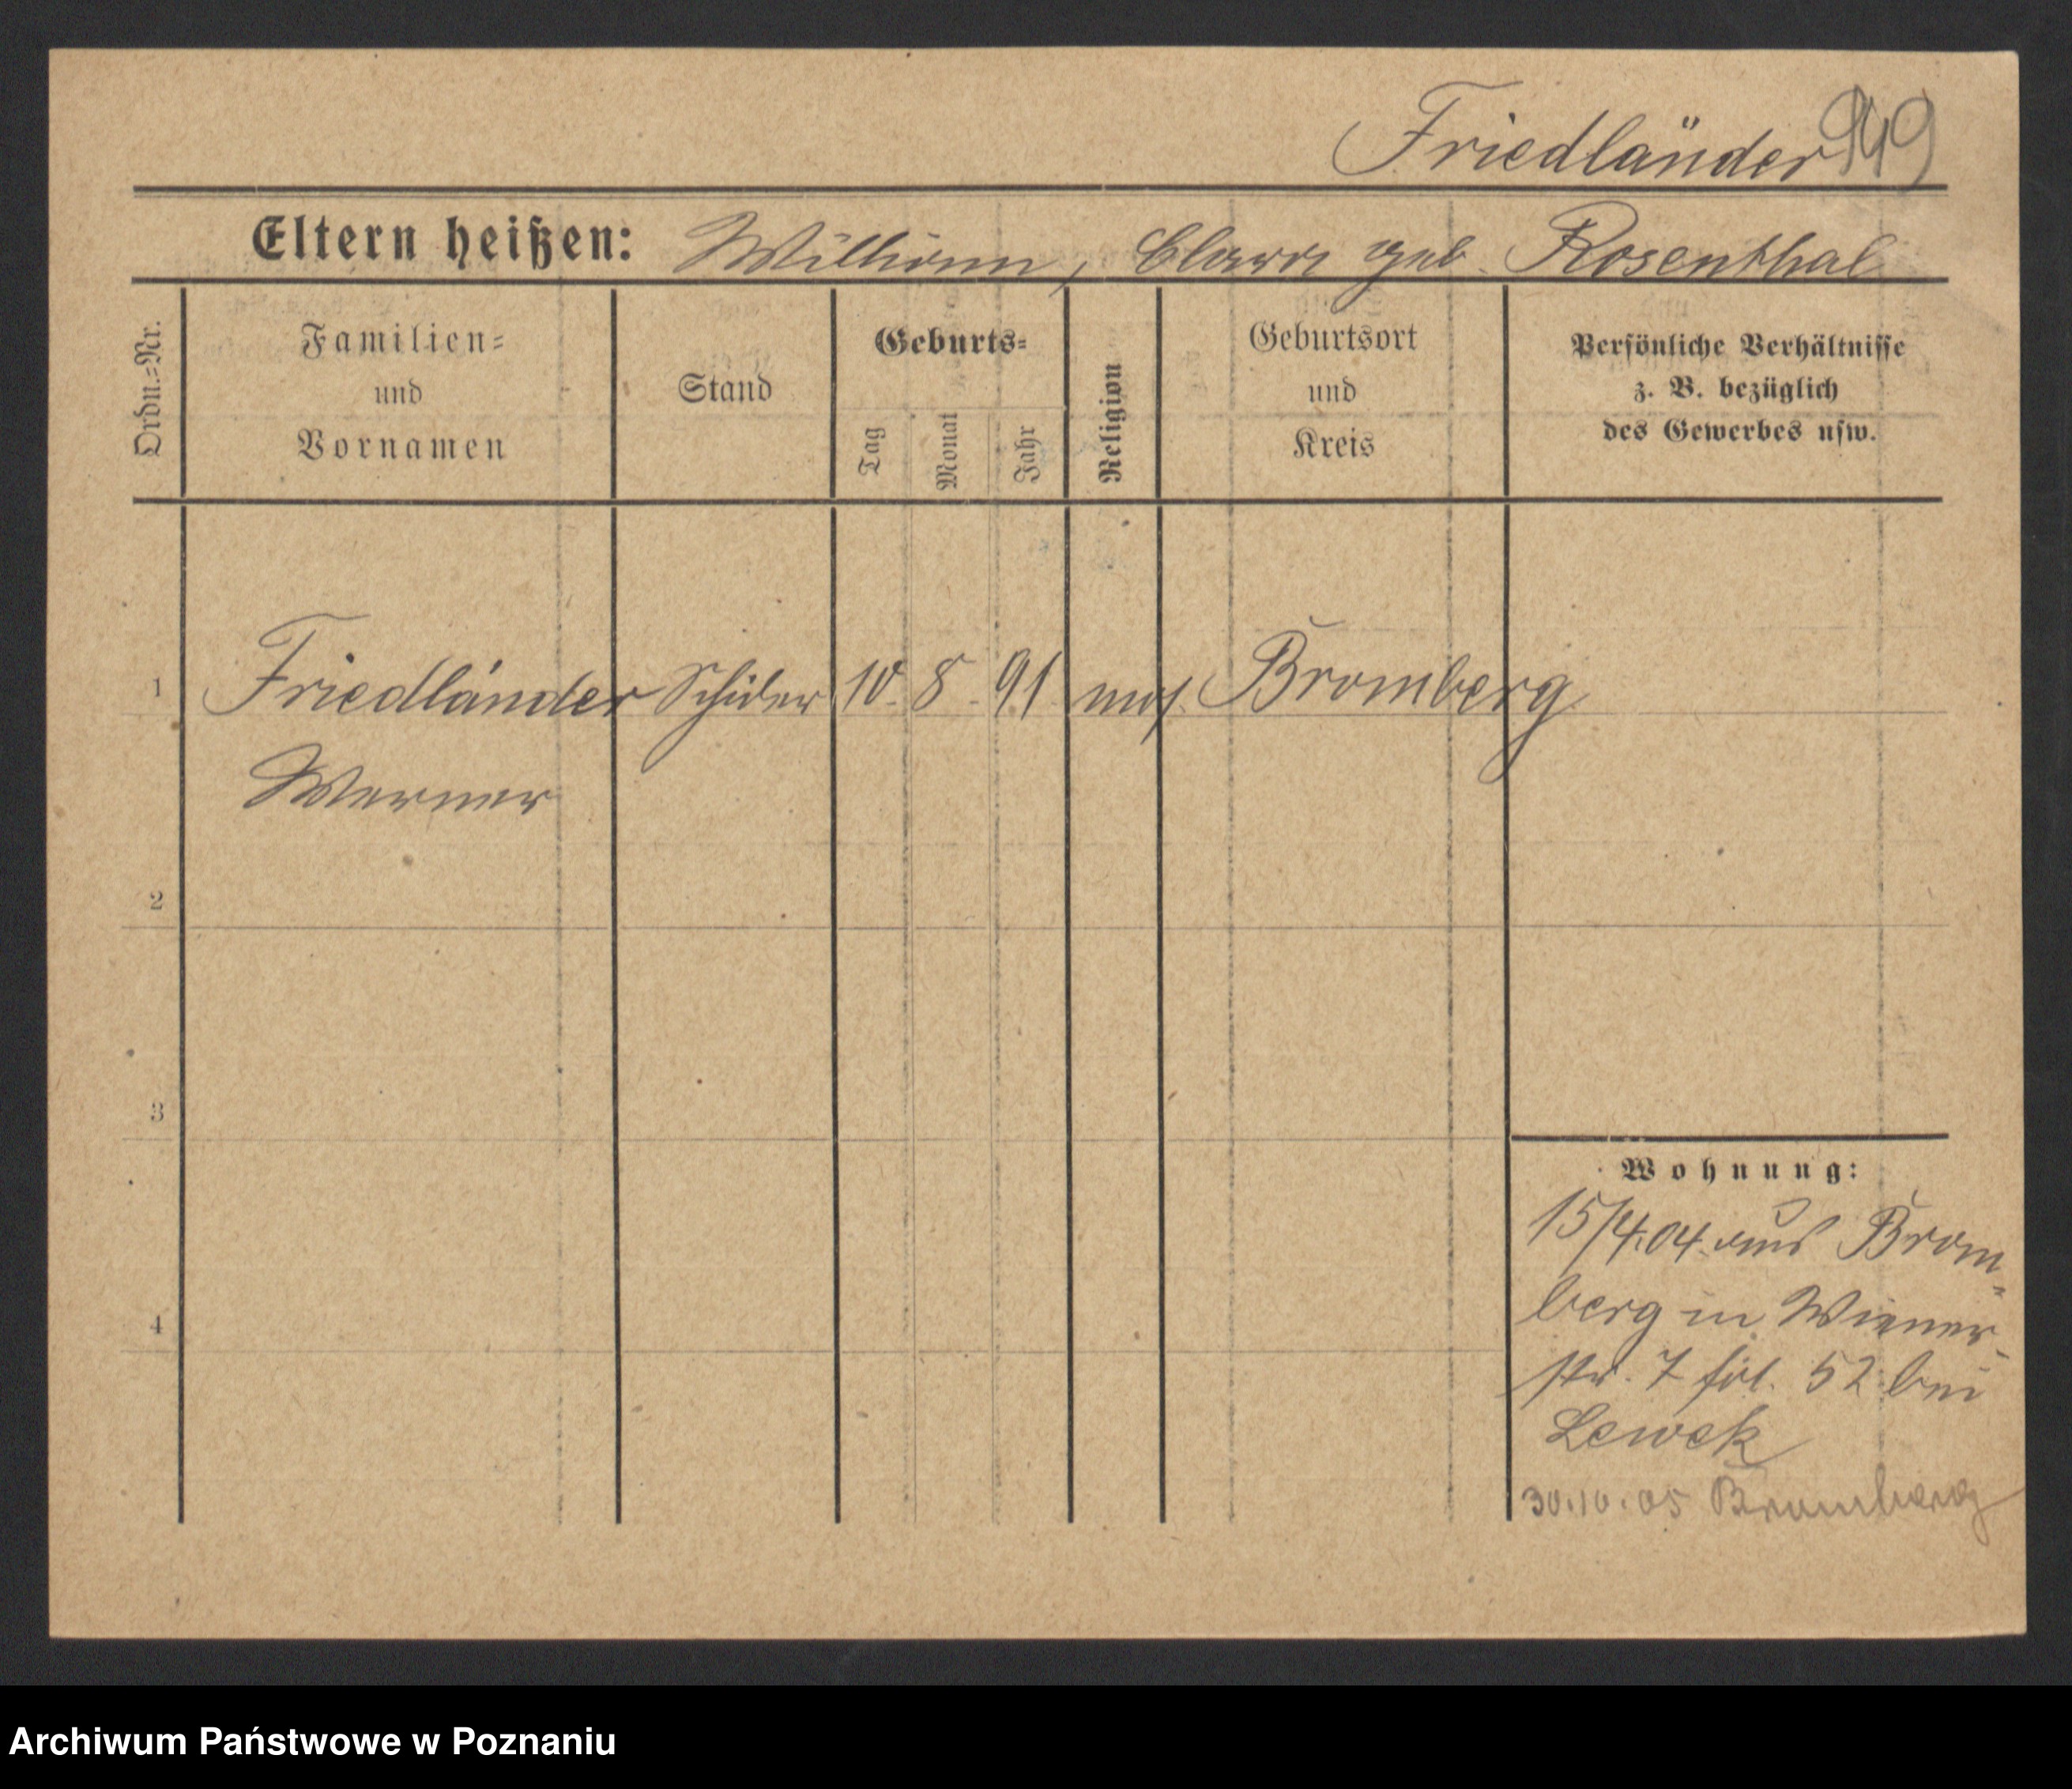 Friedländer 949
Eltern heißen: William, Clara geb. Rosenthal
Ordn.=Nr.
Familien=
und
Vornamen
Stand
Geburts=
Tag
Monat
Jahr
Religion
Geburtsort
und
Kreis
Persönliche Verhältnisse
z. B. bezüglich
des Gewerbes usw.
1 Friedländer Schüler 10. 8. 91 mos. Bromberg
Werner
2
3
4
Wohnung:
15/4.04. aus Brom-
berg in Wiener-
str. 7 fol. 52 bei
Lewek
30.10.05 Bromberg
Archiwum Państwowe w Poznaniu